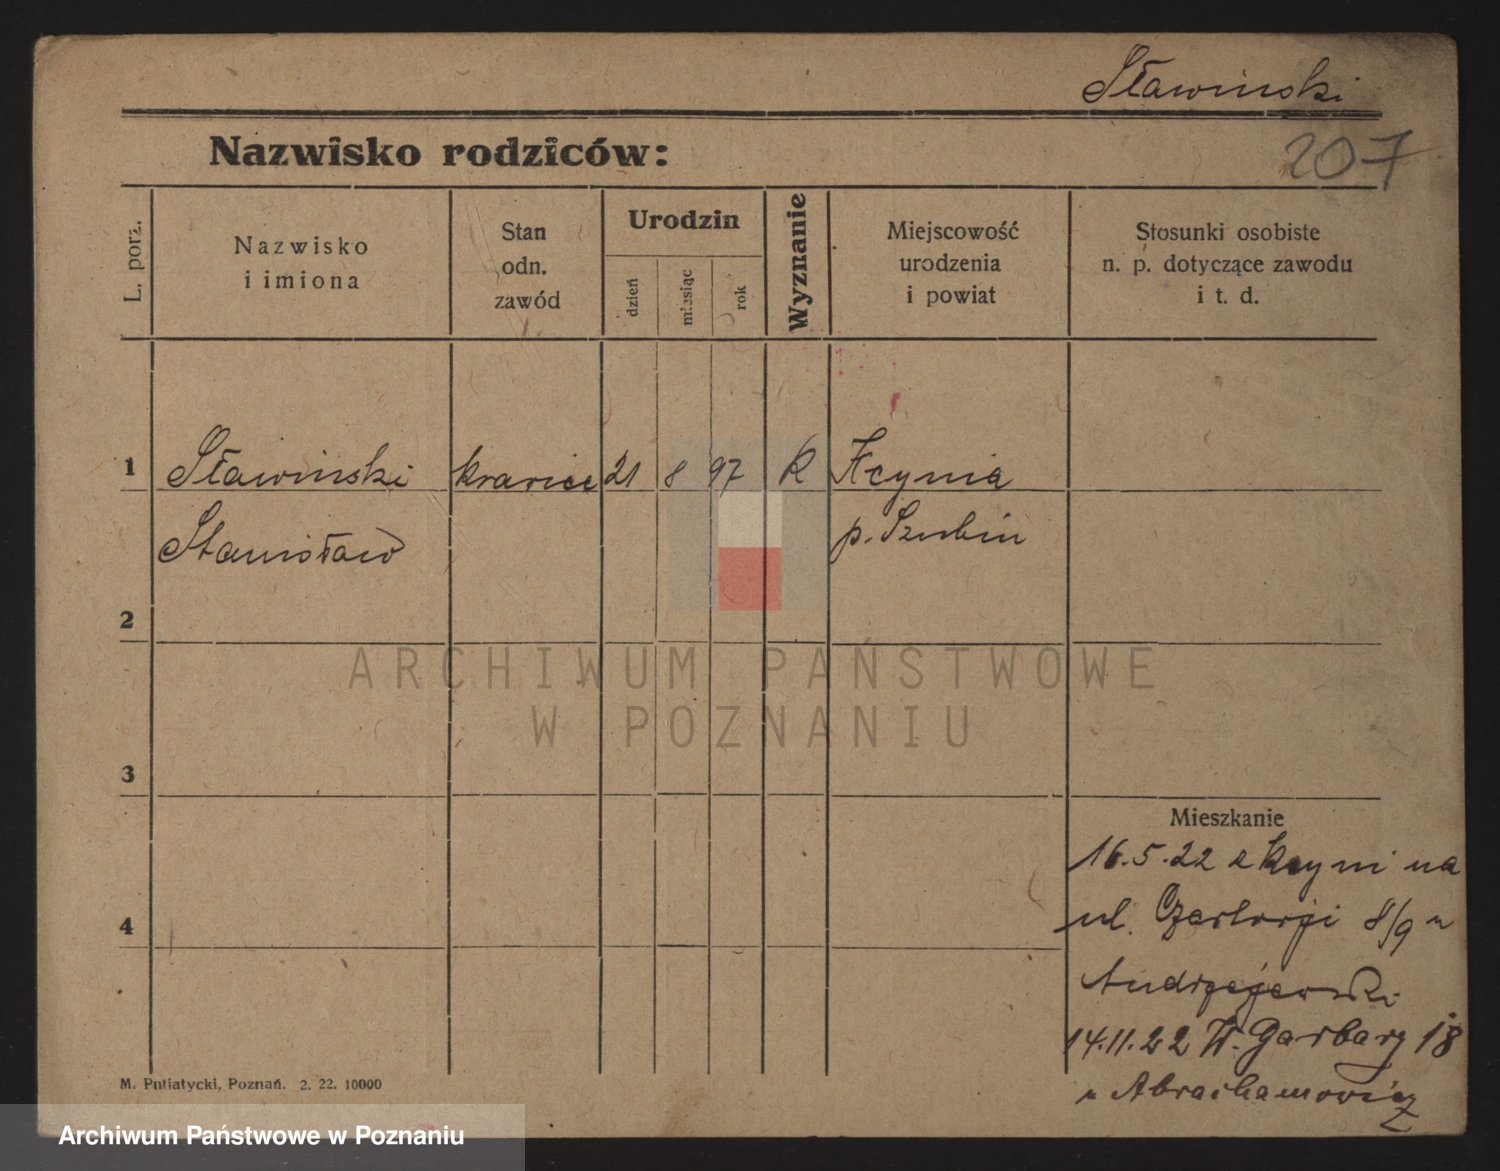 Sławinski
Nazwisko rodziców:
207
L. porz.
Nazwisko
i imiona
Stan
odn.
zawód
Urodzin
dzień
miesiąc
rok
Wyznanie
Miejscowość
urodzenia
i powiat
Stosunki osobiste
n. p. dotyczące zawodu
i t. d.
1 Sławinski krawiec 21 8 97 R Kcynia
Stanisław p. Szubin
2
ARCHIWUM PAŃSTWOWE
W POZNANIU
3
Mieszkanie
16.5.22 z Kcyni na
ul. 8/9 u
4
Andrzejewski
14.11.22 W. Garbary 18
u Abrachamowicz
M. Putiatycki, Poznań. 2. 22. 10000
Archiwum Państwowe w Poznaniu